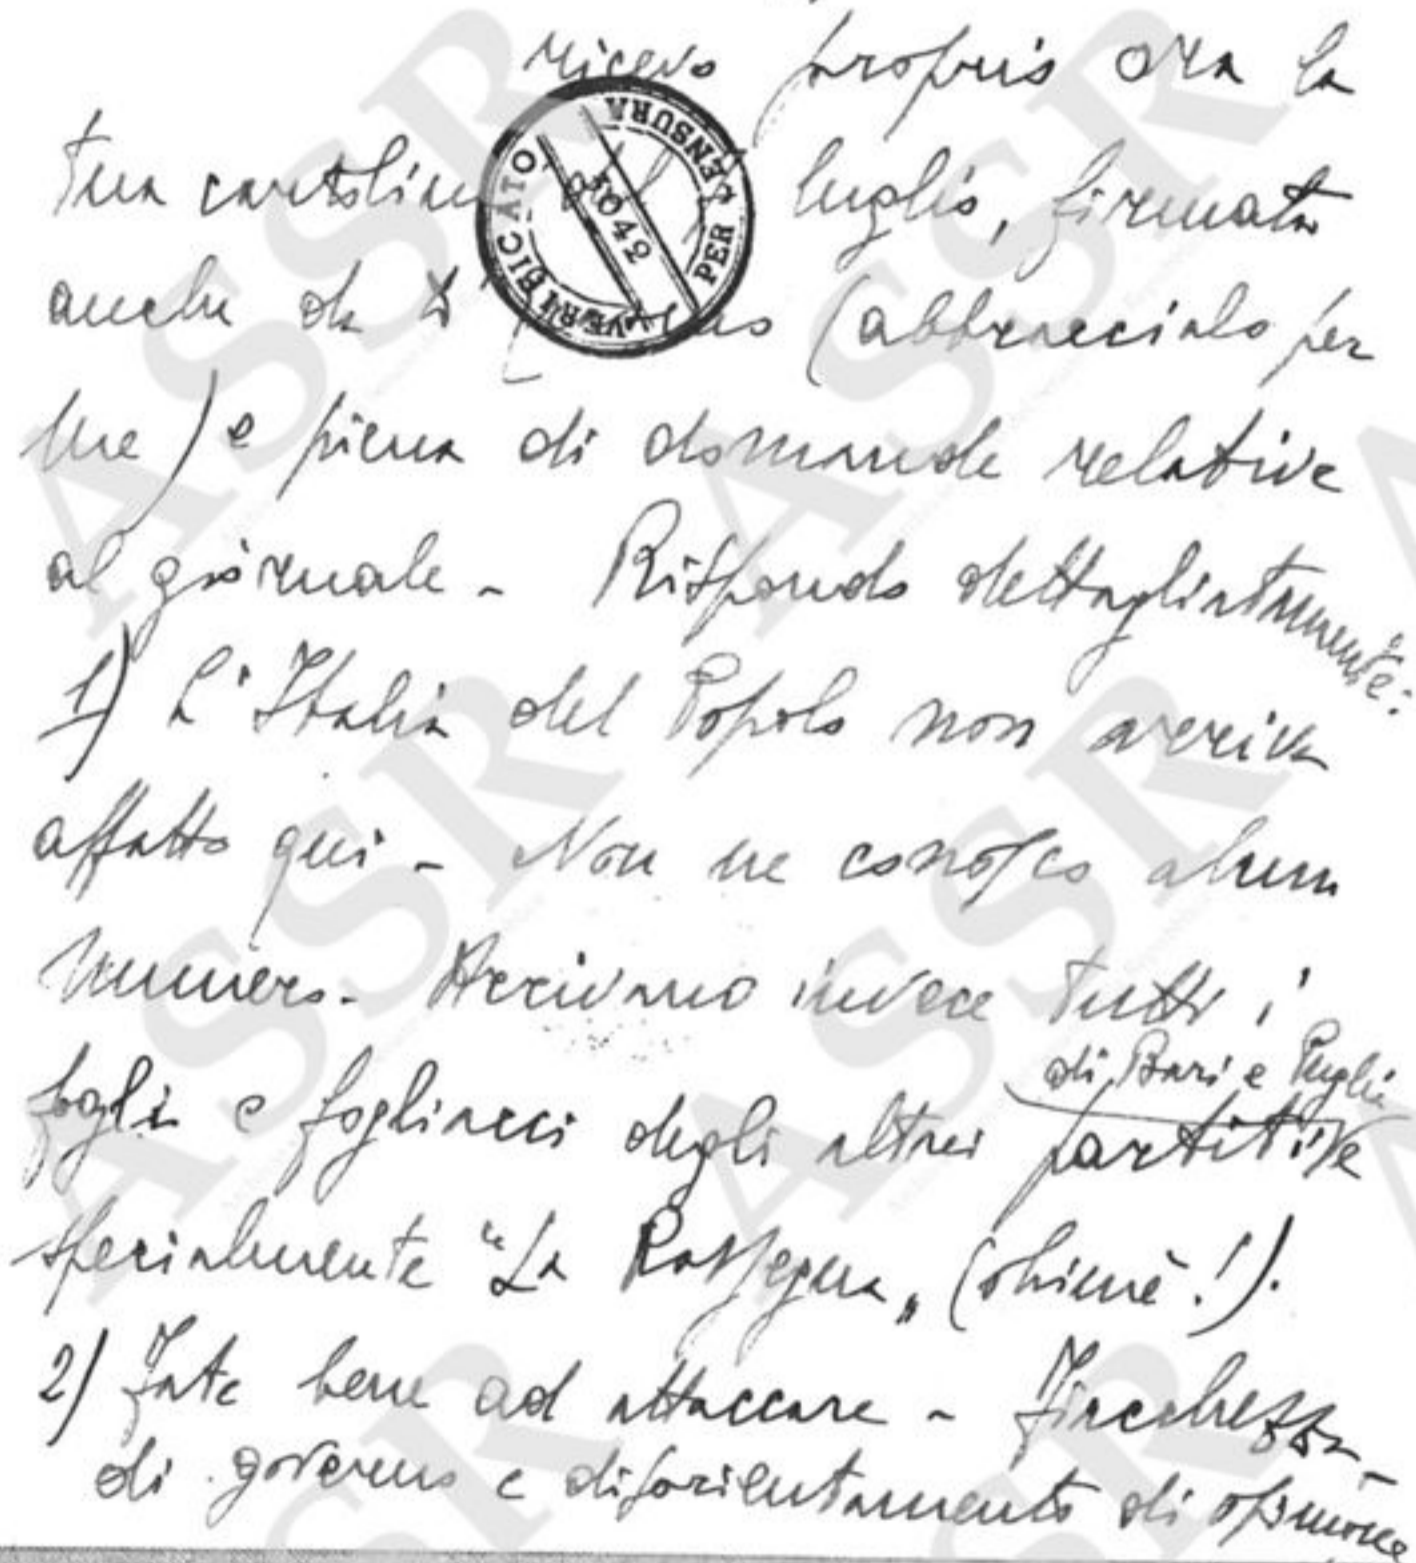 ricevo proprio ora la
tua cartolina luglio, firmata
anche da (abbraccialo per
me) e piena di domande relative
al giornale - Rispondo dettagliatamente:
1) L'Italia del Popolo non arriva
affatto qui - Non ne conosco alcun
numero. Arrivano invece tutti i
di Bari e Puglia
fogli e fogliacci degli altri partiti e
specialmente "La Rassegna" (ohimè!).
2) Fate bene ad attaccare - Fiacchezza
di governo e disorientamento di opinione
VERIFICATO PER CENSURA
3042
ASSR